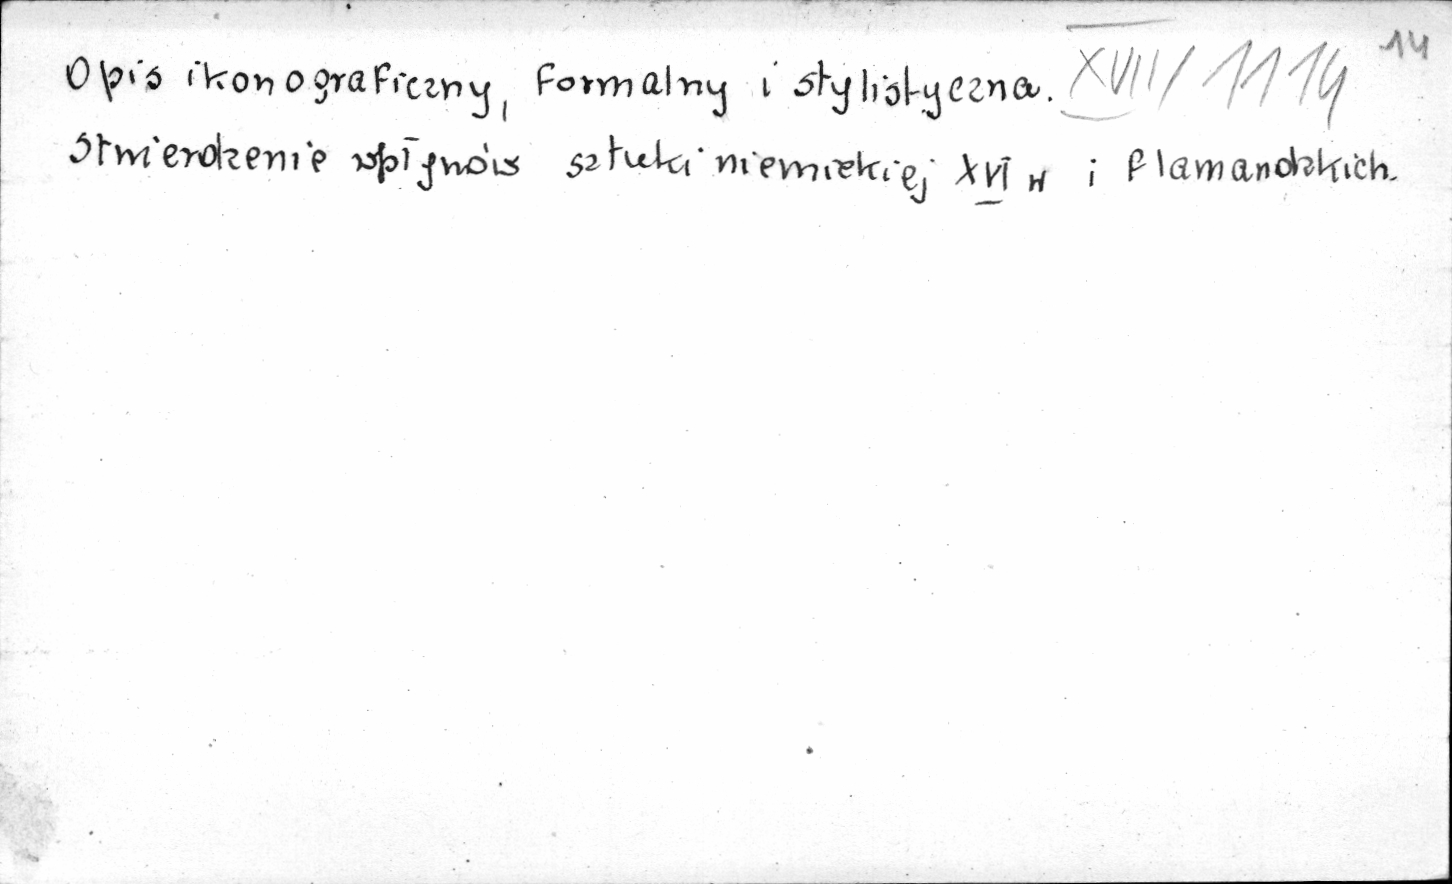 Opis ikonograficzny, formalny i stylistyczna. XVII/1114 14
Stwierdzenie wpływów sztuki niemieckiej XVI w i flamandzkich.